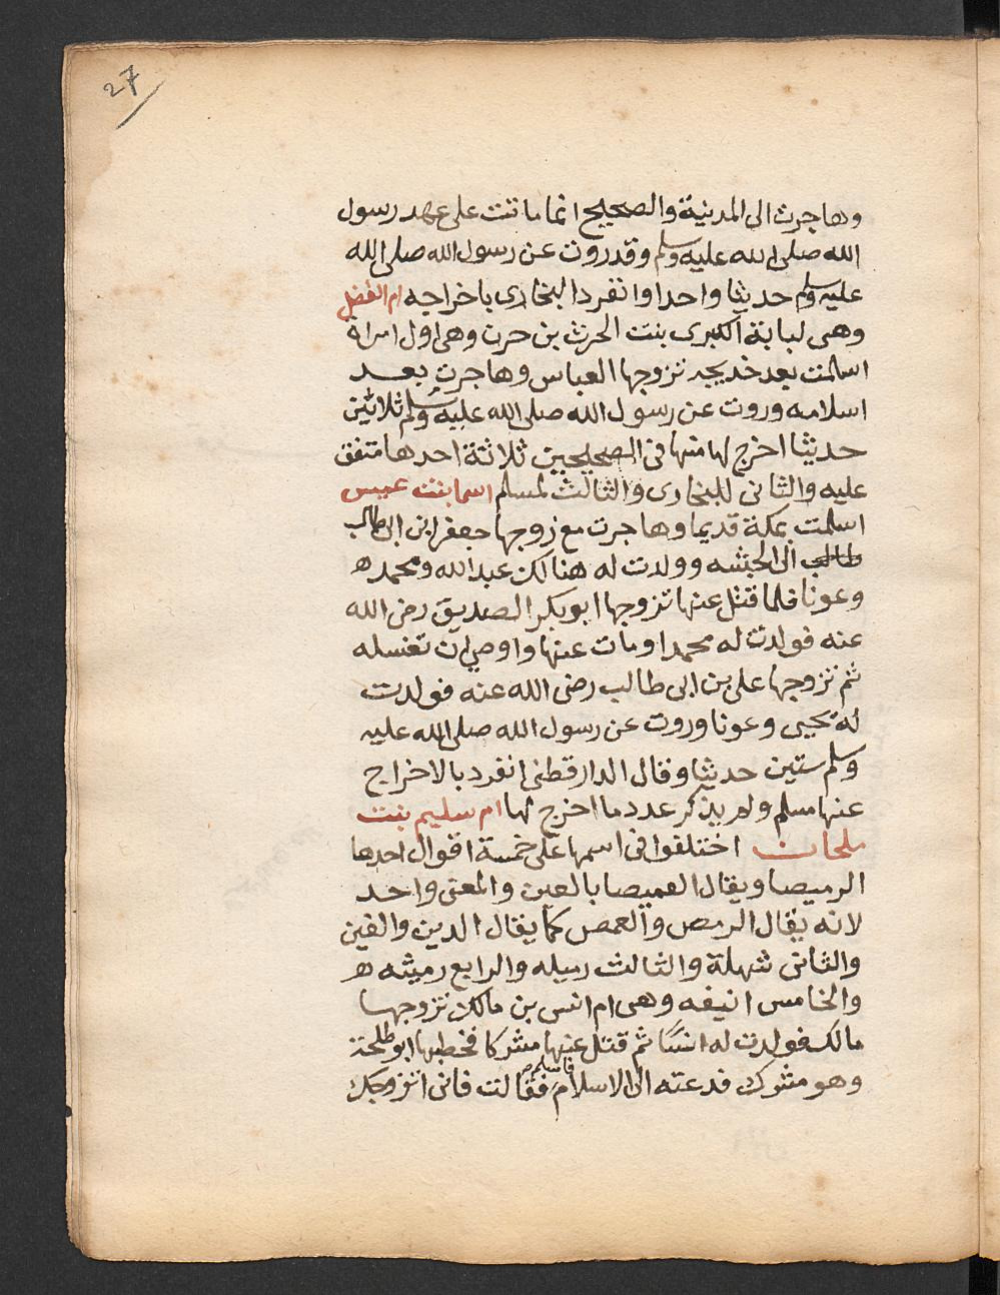 27
وهاجرت الى المدينة والصحيح انما ماتت على عهد رسول
الله صلى الله عليه وسلم وقد روت عن رسول الله صلى الله
عليه وسلم حديثا واحدا وانفرد البخارى باخراجه ام الفضل
وهى لبابة الكبرى بنت الحرث بن حرن وهى اول امراة
اسلمت بعد خديجه تزوجها العباس وهاجرت بعد
اسلامه وروت عن رسول الله صلى الله عليه وسلم ثلاثين
حديثا اخرج لها منها فى الصحيحين ثلاثة احدها متفق
عليه والثانى للبخارى والثالث لمسلم اسما بنت عميس
اسلمت بمكة قديما وهاجرت مع زوجها جعفر ابن ابى طالب
طالب الى الحبشه وولدت له هنالك عبد الله ومحمد ه
وعونا فلما قتل عنها تزوجها ابو بكر الصديق رضى الله
عنه فولدت له محمدا ومات عنها واوصى ان تغسله
ثم تزوجها على بن ابى طالب رضى الله عنه فولدت
له يحيى وعونا وروت عن رسول الله صلى الله عليه
وسلم ستين حديثا وقال الدارقطنى انفرد بالاخراج
عنها مسلم ولم يذكر عدد ما اخرج لها ام سليم بنت
ملحان اختلفوا فى اسمها على خمسة اقوال احدها
الرميصا ويقال الغميصا بالعين والمعنى واحد
لانه يقال الرمص والغمص كما يقال الدين والغين
والثانى شهلة والثالث رميله والرابع رميثه ه
والخامس انيفه وهى ام انس بن مالك تزوجها
مالك فولدت له انسًا ثم قتل عنها مشركا فخطبها ابو طلحة
وهو مشرك فدعته الى الاسلام فاسلم فقالت فانى اتزوجك